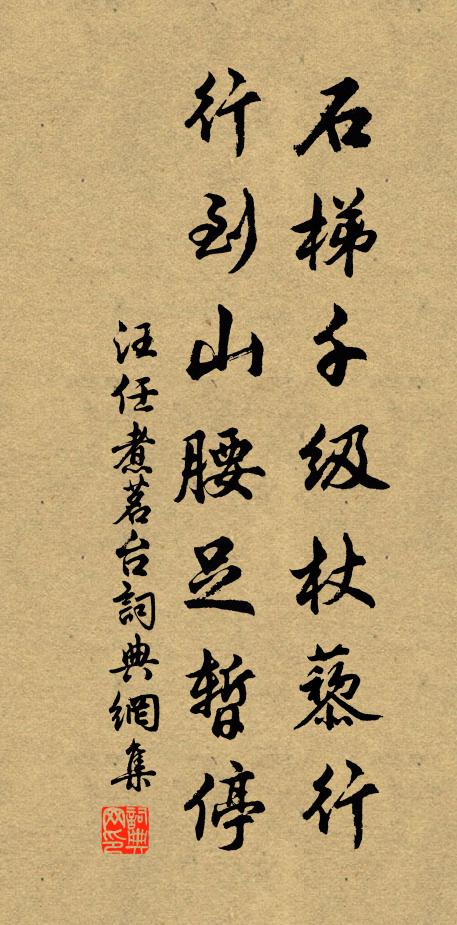 石梯千级杖藜行
行到山腰足暫停
汪任煮茗台詞典網集
詞典網印